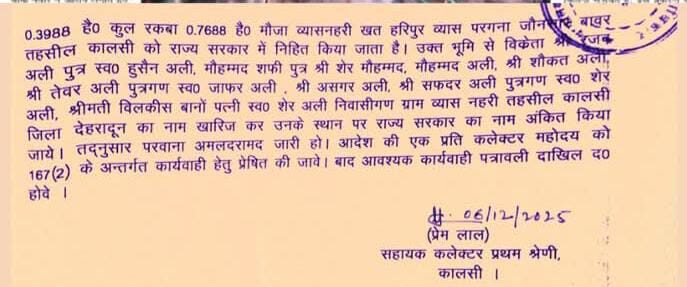 0.3988 है0 कुल रकबा 0.7688 है0 मौजा व्यासनहरी खत हरिपुर व्यास परगना बावर
तहसील कालसी को राज्य सरकार में निहित किया जाता है। उक्त भूमि से विक्रेता श्री
अली पुत्र स्व0 हुसैन अली, मौहम्मद शफी पुत्र श्री शेर मौहम्मद, मौहम्मद अली, श्री शौकत अली,
श्री तेवर अली पुत्रगण स्व0 जाफर अली , श्री असगर अली, श्री सफदर अली पुत्रगण स्व0 शेर
अली, श्रीमती विलकीस बानों पत्नी स्व0 शेर अली निवासीगण ग्राम व्यास नहरी तहसील कालसी
जिला देहरादून का नाम खारिज कर उनके स्थान पर राज्य सरकार का नाम अंकित किया
जाये। तद्नुसार परवाना अमलदरामद जारी हो। आदेश की एक प्रति कलेक्टर महोदय को
167(2) के अन्तर्गत कार्यवाही हेतु प्रेषित की जावे। बाद आवश्यक कार्यवाही पत्रावली दाखिल द0
होवे ।
06/12/2025
(प्रेम लाल)
सहायक कलेक्टर प्रथम श्रेणी,
कालसी ।